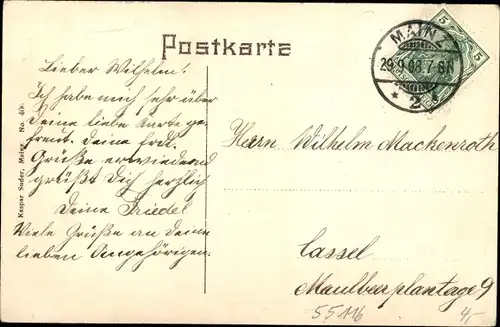 Postkarte
MAINZ
29.9.08.7-8N
* 2 *
5
5
Lieber Wilhelm!
Ich habe mich sehr über
Deine liebe Karte ge-
freut. Deine frdl.
Grüße erwiedernd
grüßt Dich herzlich
Deine Friedel
Viele Grüße an Deine
lieben Angehörigen.
Herrn Wilhelm Mackenroth
Cassel
Maulbeerplantage 9
Kaspar Suder, Mainz. No.
55116
4,-